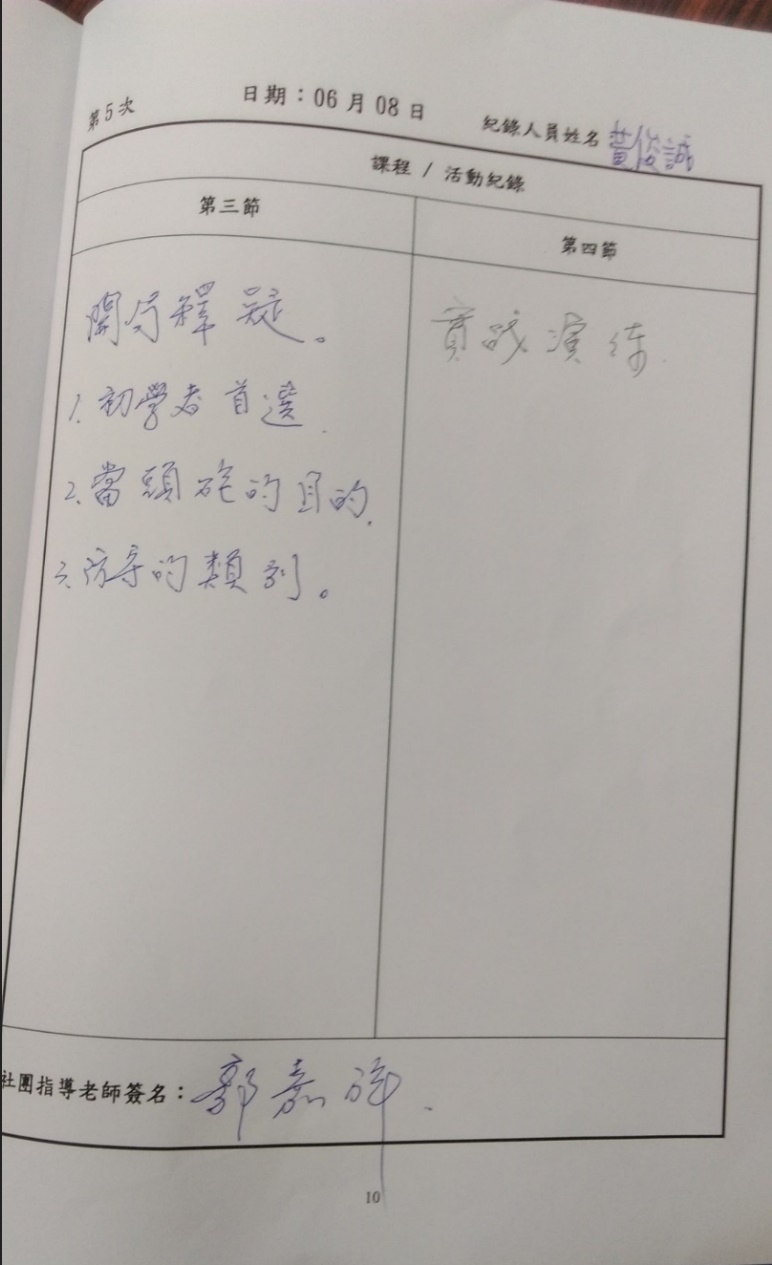 第5次 日期：06月08日 紀錄人員姓名 黃俊誠
課程 / 活動紀錄
第三節 第四節
開局釋疑。
1.初學者首選.
2.當頭砲的目的.
3.防守的類別。
實戰演练.
社團指導老師簽名：郭嘉祥.
10